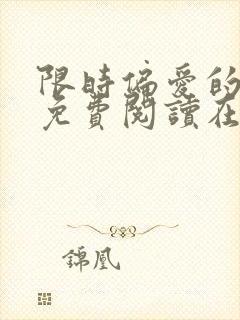 限時偏愛的
免費閱讀在
錦凰